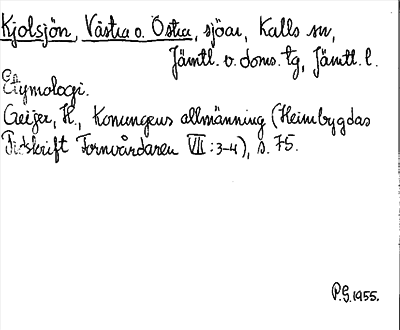 Kjolsjön, Västra o. Östra, sjöar, Kalls sn,
Jämtl. v. doms. tg, Jämtl. l.
Etymologi.
Geijer, H., Konungens allmänning (Heimbygdas
Tidskrift Fornvårdaren VII:3-4), s. 75.
P.G. 1955.